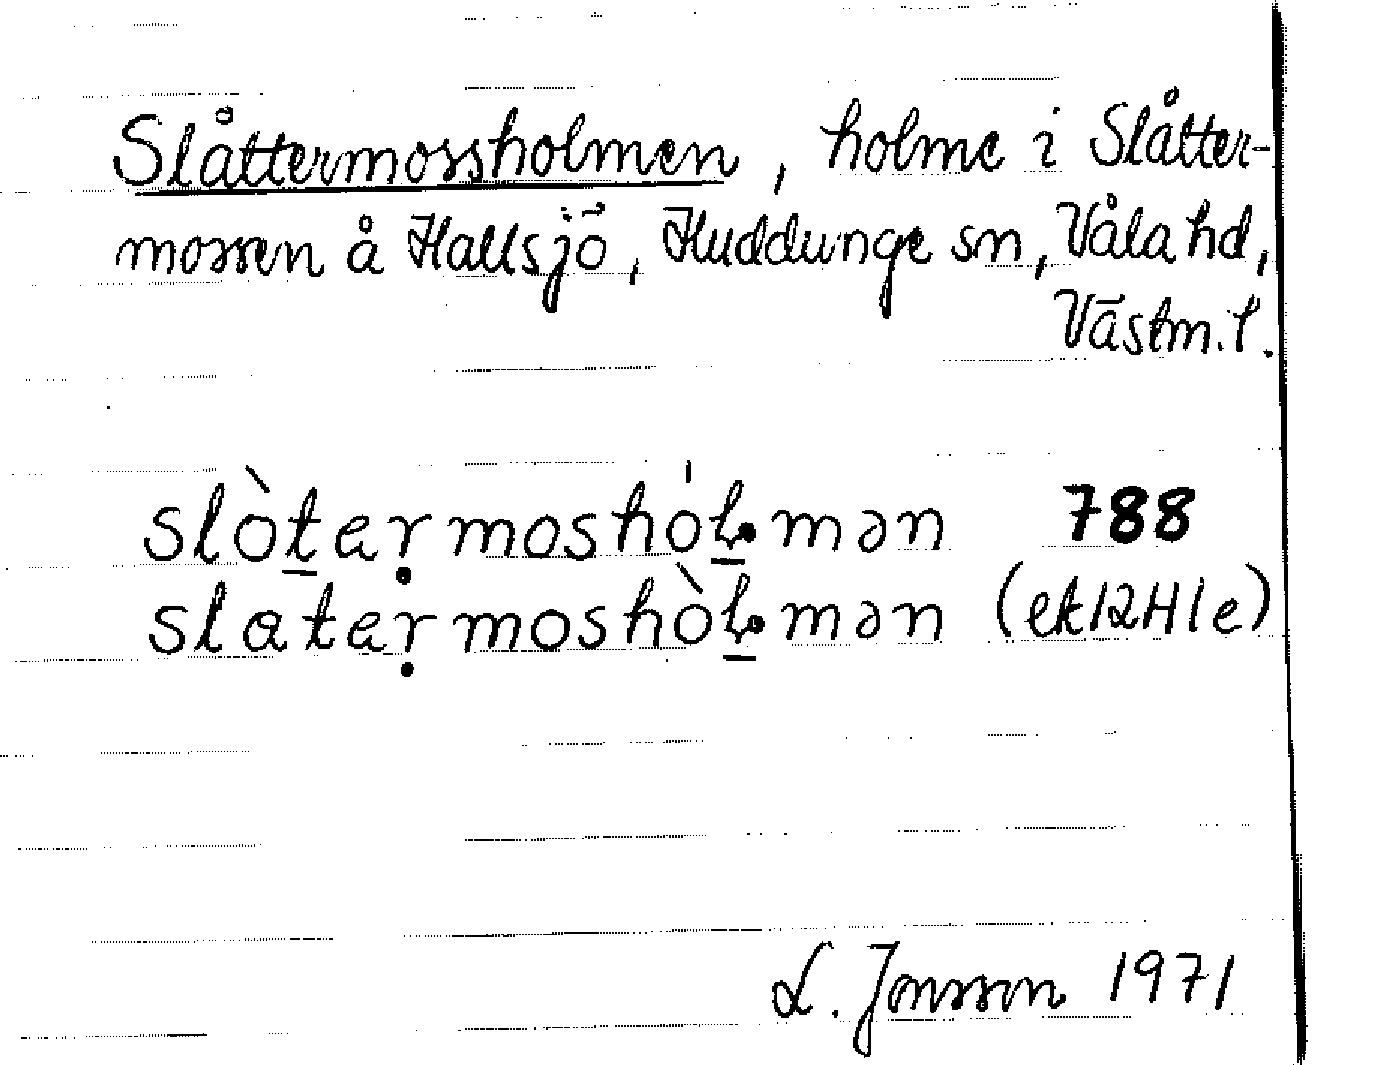 Slåttermossholmen, holme i Slåtter-
mossen å Hallsjö, Huddunge sn, Våla hd,
Västm. l.
slòt̠er̥moshól̠mən 788
slater̥moshòl̠mən (ek12H1e)
L. Jonsson 1971